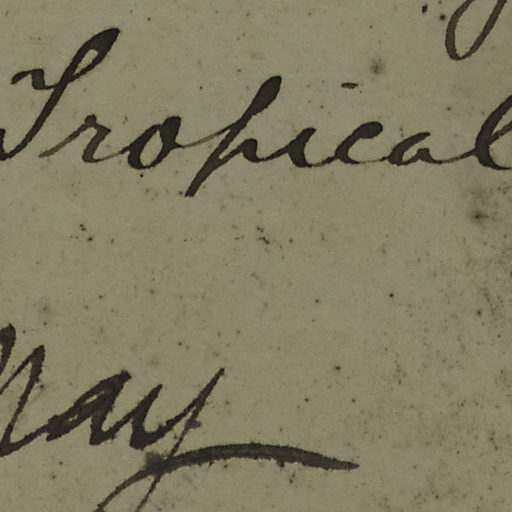 Tropical
May